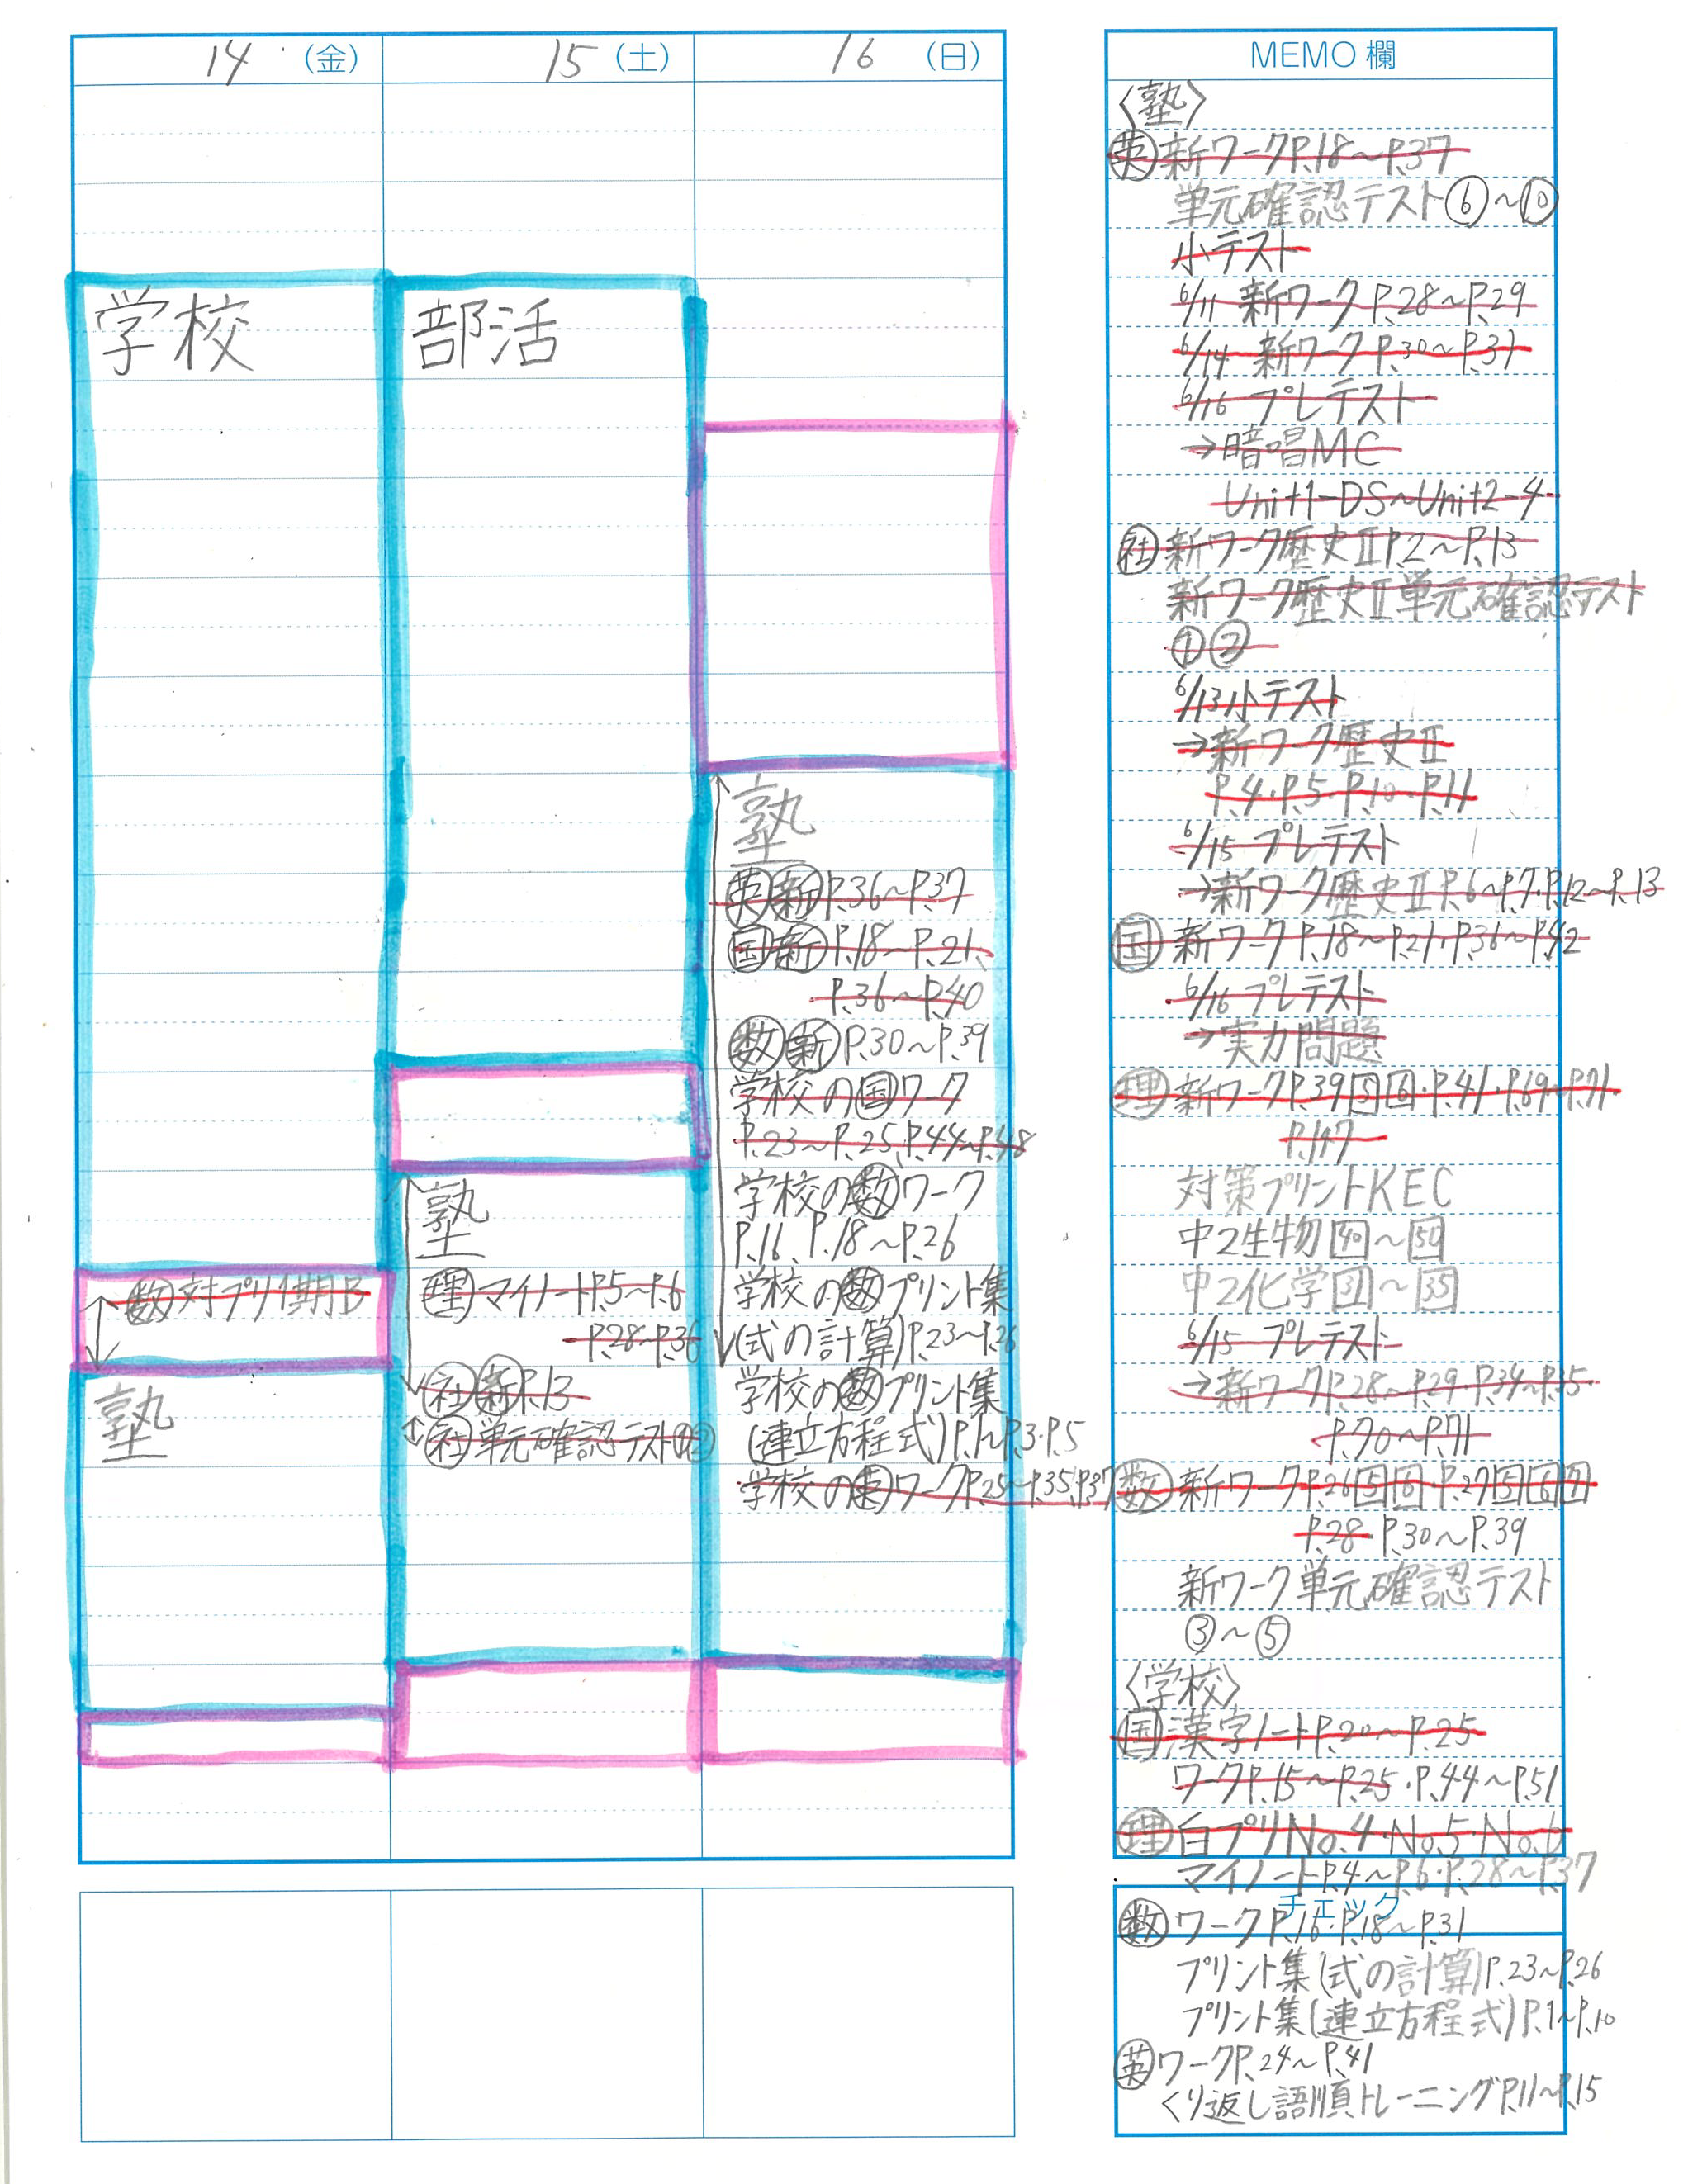 14 (金)
学校
㊫対プリ1期B
塾
15 (土)
部活
塾
理 マイノートP.5~P.6
P.28~P.36
社 新 P.13
社 単元確認テスト①②
16 (日)
塾
英 新 P.36~P.37
国 新 P.18~P.21、
P.36~P.40
数 新 P.30~P.39
学校の国ワーク
P.23~P.25、P.44~P.48
学校の数ワーク
P.16、P.18~P.26
学校の数プリント集
(式の計算)P.23~P.26
学校の数プリント集
(連立方程式)P.1~P.3・P.5
学校の英ワークP.25~P.35、P.37
MEMO 欄
〈塾〉
英 新ワークP.18~P.37
単元確認テスト⑥~⑩
小テスト
6/11 新ワーク P.28~P.29
6/14 新ワーク P.30~P.31
6/16 プレテスト
→暗唱MC
Unit1-DS~Unit2-4
社 新ワーク歴史ⅡP.2~P.13
新ワーク歴史Ⅱ単元確認テスト
①②
6/13 小テスト
→新ワーク歴史Ⅱ
P.4・P.5・P.10・P.11
6/15 プレテスト
→新ワーク歴史Ⅱ P.6~P.7・P.12~P.13
国 新ワーク P.18~P.21・P.36~P.42
6/16 プレテスト
→実力問題
理 新ワークP.39 5 6・P.41・P.69~P.71
P.147
対策プリントKEC
中2生物 40~50
中2化学 31~35
6/15 プレテスト
→新ワークP.28~P.29・P.34~P.35
P.70~P.71
数 新ワークP.26 5 6 P.27 5 6 7
P.28 P.30~P.39
新ワーク単元確認テスト
③~⑤
〈学校〉
国 漢字ノートP.20~P.25
ワークP.15~P.25・P.44~P.51
理 白プリNo.4・No.5・No.6
マイノートP.4~P.6・P.28~P.37
チェック
数 ワークP.16・P.18~P.31
プリント集(式の計算)P.23~P.26
プリント集(連立方程式)P.1~P.10
英 ワークP.24~P.41
くり返し語順トレーニングP.11~P.15